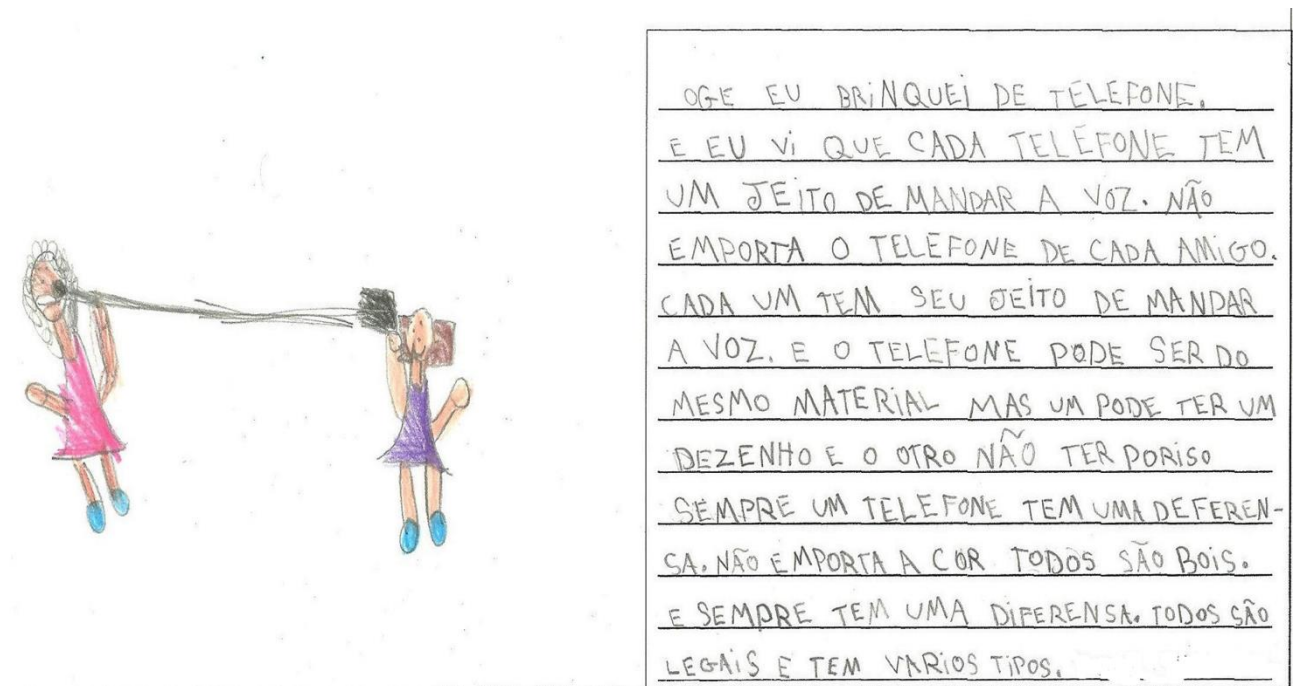 OGE EU BRINQUEI DE TELEFONE.
E EU VI QUE CADA TELEFONE TEM
UM JEITO DE MANDAR A VOZ. NÃO
EMPORTA O TELEFONE DE CADA AMIGO.
CADA UM TEM SEU JEITO DE MANDAR
A VOZ. E O TELEFONE PODE SER DO
MESMO MATERIAL MAS UM PODE TER UM
DEZENHO E O OTRO NÃO TER PORISO
SEMPRE UM TELEFONE TEM UMA DEFEREN-
SA. NÃO EMPORTA A COR TODOS SÃO BOIS.
E SEMPRE TEM UMA DIFERENSA. TODOS SÃO
LEGAIS E TEM VARIOS TIPOS.